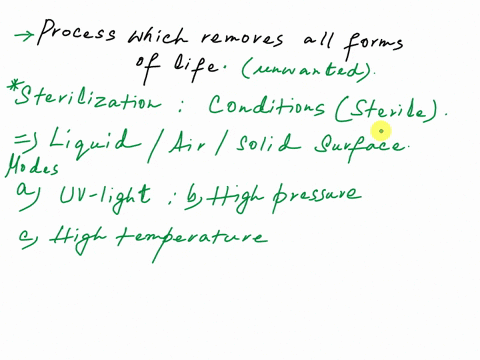 → Process which removes all forms
of life. (unwanted).
*Sterilization : Conditions (Sterile).
⇒ Liquid / Air / Solid Surface.
Modes
a) UV-light ; b) High pressure
c) High temperature